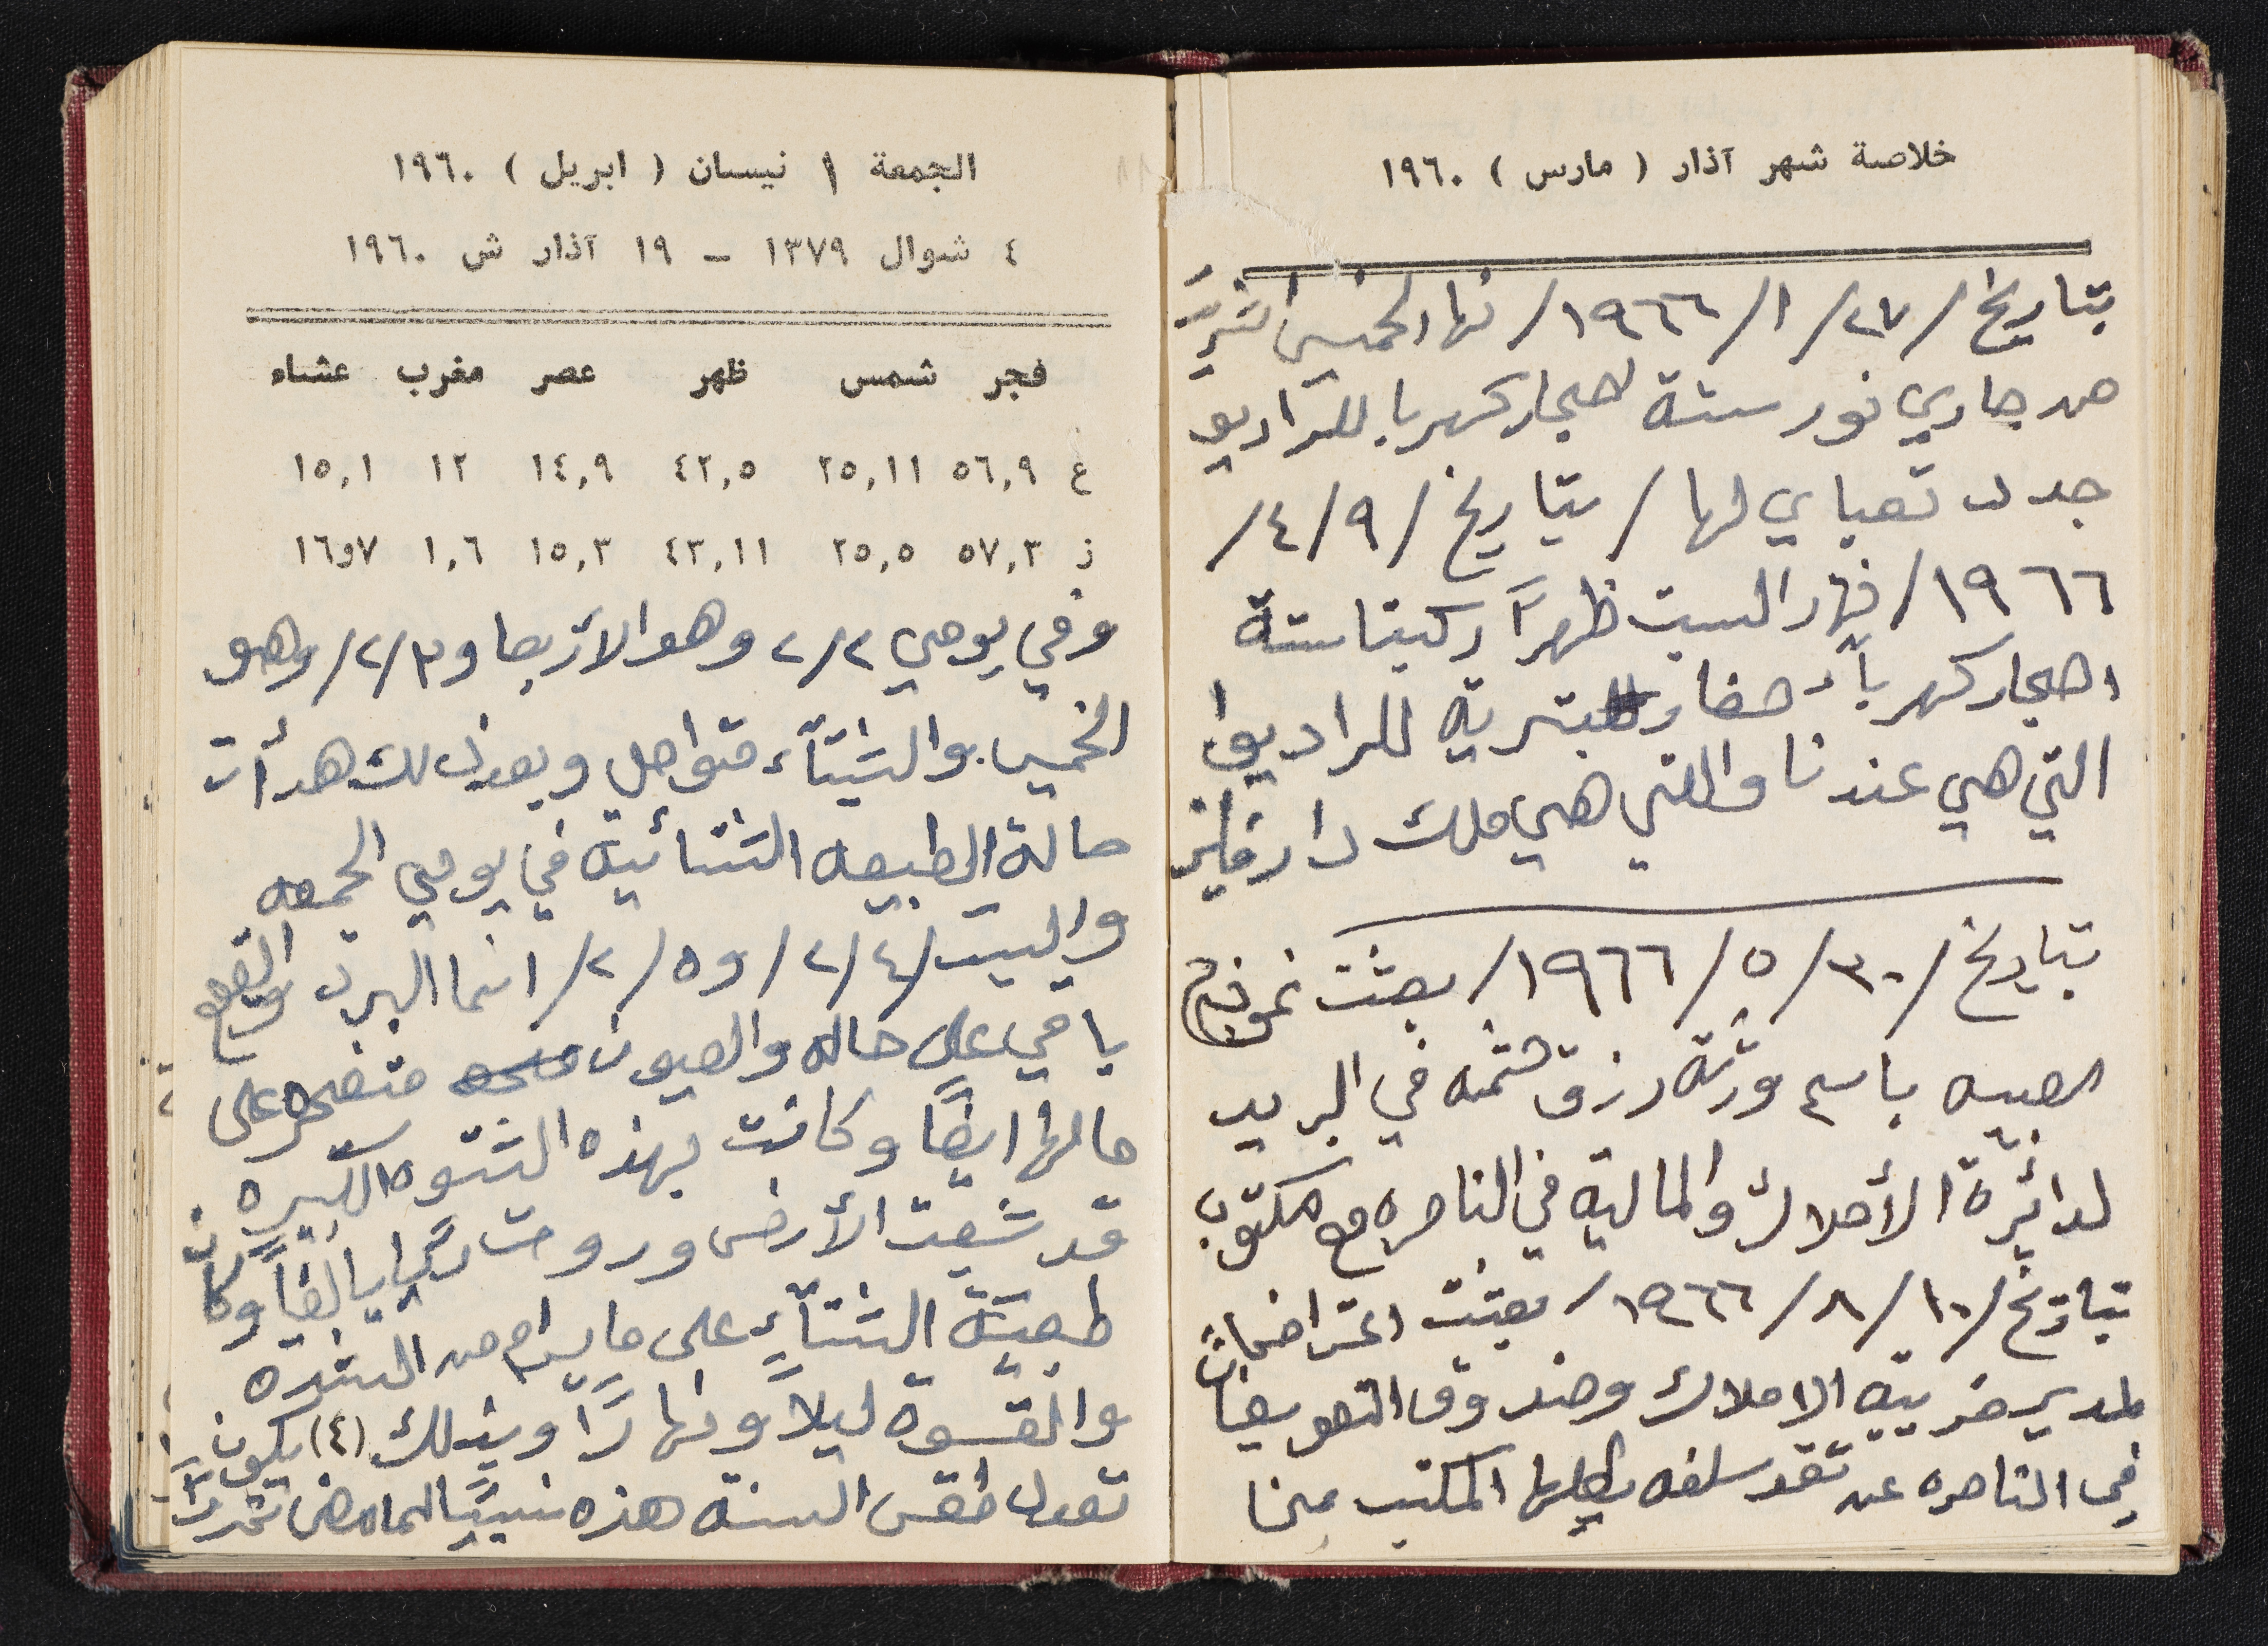 خلاصة شهر آذار ( مارس ) ١٩٦٠
بتاريخ /٢٧/ ١/ ١٩٦٦/ نهار الخميس
من جاري نور ستة احجار كهربا للراديو
جدد تعباي لها / بتاريخ /٩ /٤/
١٩٦٦/ نهار السبت ظهرًا ركبنا ستة
احجار كهرباء صغار بتريه للراديو
التي هي عندنا والتي هي ملك دار
بتاريخ /٣٠ /٥ /١٩٦٦/ بعثت نموذج
باسم ورثة رزق في البريد
لدائرة الأملاك والمالية في الناصره مع مكتوب
بتاريخ /١٠ /٨ /١٩٦٦/ بعثت اعتراضات
لمدير ضريبة الاملاك وصندوق التعويضات
في الناصره عن نقد سلفه يطلبها المكتب منا
الجمعة ١ نيسان ( ابريل ) ١٩٦٠
٤ شوال ١٣٧٩ – ١٩ آذار ش ١٩٦٠
فجر شمس ظهر عصر مغرب عشاء
ع ٥٦,٩ ٢٥,١١ ٤٢,٥ ١٤,٩ ١٢ ١٥,١
ز ٥٧,٣ ٢٥,٥ ٤٣,١١ ١٥,٣ ١,٦ ١٦و٧
وفي يومي ٢/٢ وهو الأربعا و٢/٣/ وهو
الخميس والشتاء متواصل وبعد ذلك هدأت
حالة الطبيعه الشتائية في يومي الجمعه
والسبت /٢/٤/ و٢/٥/ انما البرد والصقع
باقي على حاله والعيون متفجره على
حالها ايضًا وكانت بهذه الشتوه الكبيره
قد شبعت الأرض وروت ايضًا وكان
طبيعة الشتاء على ما يرام من الشدة
والقسوة ليلاً ونهارًا وبذلك (٤) يكون
تعدل طقس السنة هذه نسبيًا لما مضى